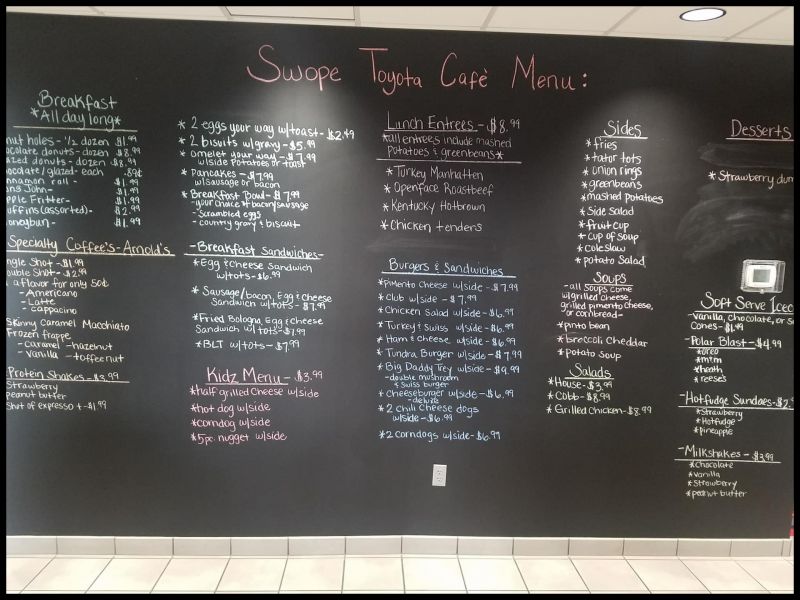 Swope Toyota Cafè Menu:
Breakfast
*All day long*
nut holes - 1/2 dozen $1.99
ocolate donuts - dozen $8.99
azed donuts - dozen - $8.99
ocolate/glazed - each .89¢
nnamon roll - $1.99
ans John - $1.99
pple Fritter - $1.99
uffins (assorted) - $2.99
oneybun - $1.99
Specialty Coffee's - Arnold's
ngle Shot - $1.99
ouble Shot - $2.99
a flavor for only 50¢
- Americano
- Latte
- cappacino
Skinny Caramel Macchiato
Frozen frappe
- caramel - hazelnut
- vanilla - toffee nut
Protein Shakes - $3.99
Strawberry
peanut butter
shot of expresso + - $1.99
* 2 eggs your way w/toast - $2.49
* 2 bisuits w/gravy - $5.99
* omelet your way - $7.99
w/side potatoes or toast
* Pancakes - $7.99
w/Sausage or bacon
* Breakfast Bowl - $7.99
- your choice of bacon/sausage
- Scrambled eggs
- country gravy & biscuit
- Breakfast Sandwiches -
* Egg & Cheese Sandwich
w/tots - $6.99
* Sausage/bacon, Egg & Cheese
Sandwich w/tots - $7.99
* Fried Bologna, Egg & Cheese
Sandwich w/tots - $7.99
* BLT w/tots - $7.99
Kidz Menu - $3.99
* half grilled cheese w/side
* hot dog w/side
* corndog w/side
* 5pc. nugget w/side
Lunch Entrees - $8.99
*all entrees include mashed
potatoes & greenbeans*
* Turkey Manhatten
* Openface Roastbeef
* Kentucky Hotbrown
* Chicken tenders
Burgers & Sandwiches
* Pimento Cheese w/side - $7.99
* Club w/side - $7.99
* Chicken Salad w/side - $6.99
* Turkey & Swiss w/side - $6.99
* Ham & Cheese w/side - $6.99
* Tundra Burger w/side - $7.99
* Big Daddy Trey w/side - $9.99
- double mushroom
& swiss burger
* Cheeseburger w/side - $6.99
- deluxe
* 2 Chili Cheese dogs
w/side - $6.99
* 2 corndogs w/side - $6.99
Sides
* fries
* tator tots
* onion rings
* greenbeans
* mashed potatoes
* Side Salad
* fruit cup
* cup of soup
* coleslaw
* potato Salad
Soups
- all soups come
w/grilled cheese,
grilled pimento cheese,
or cornbread -
* pinto bean
* broccoli cheddar
* potato soup
Salads
* House - $3.99
* Cobb - $8.99
* Grilled Chicken - $8.99
Desserts
* Strawberry dum
Soft Serve Icec
- Vanilla, chocolate, or s
Cones - $1.99
- Polar Blast - $4.99
* oreo
* m+m
* heath
* reese's
- Hotfudge Sundaes - $2.
* Strawberry
* Hotfudge
* pineapple
- Milkshakes - $3.99
* Chocolate
* Vanilla
* Strawberry
* peanut butter